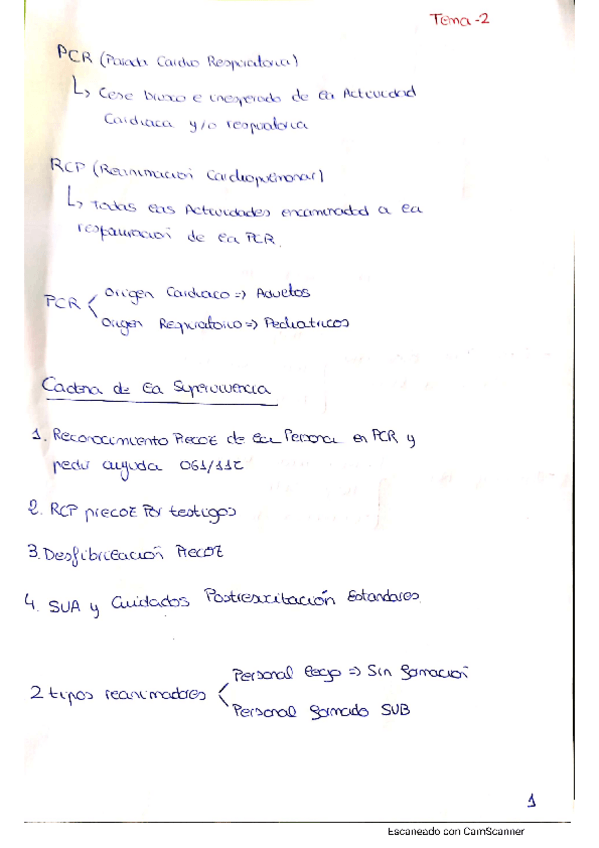 Tema-2
PCR (Parada Cardio Respiratoria)
↳ Cese brusco e inesperado de la Actividad
Cardiaca y/o respiratoria
RCP (Reanimación Cardiopulmonar)
↳ Todas las Actividades encaminadas a la
restauración de la PCR.
PCR
Origen Cardiaco => Adultos
Origen Respiratorio => Pediatricos
Cadena de la Supervivencia
1. Reconocimiento Precoz de la Persona en PCR y
pedir ayuda 061/112
2. RCP precoz por testigos
3. Desfibrilación Precoz
4. SUA y Cuidados Postresucitación Estandares.
2 tipos reanimadores
Personal lego => Sin formación
Personal formado SUB
1
Escaneado con CamScanner